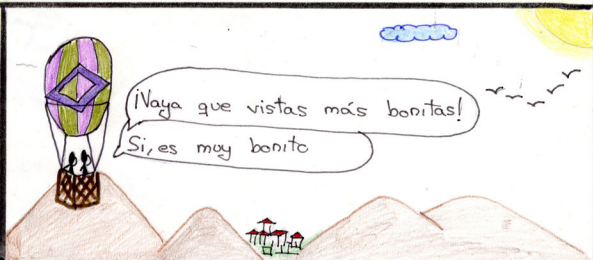 ¡Vaya que vistas más bonitas!
Si, es muy bonito